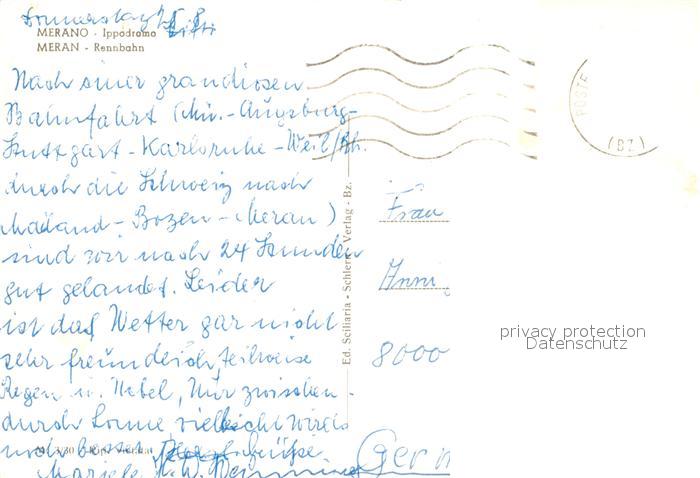 Donnerstag
MERANO - Ippodromo
MERAN - Rennbahn
Nach einer grandiosen
Bahnfahrt (Mü.-Augsburg-
Stuttgart-Karlsruhe-Weil/Rh.
durch die Schweiz nach
Mailand-Bozen-Meran)
sind wir nach 24 Stunden
gut gelandet. Leider
ist das Wetter gar nicht
sehr freundlich, teilweise
Regen u. Nebel, nur zwischen-
durch Sonne, vielleicht wird's
noch besser. Grüße
Ed. Sciliaria - Schlern Verlag - Bz.
POSTE
(BZ)
Frau
Anni
8000
Ger
privacy protection
Datenschutz